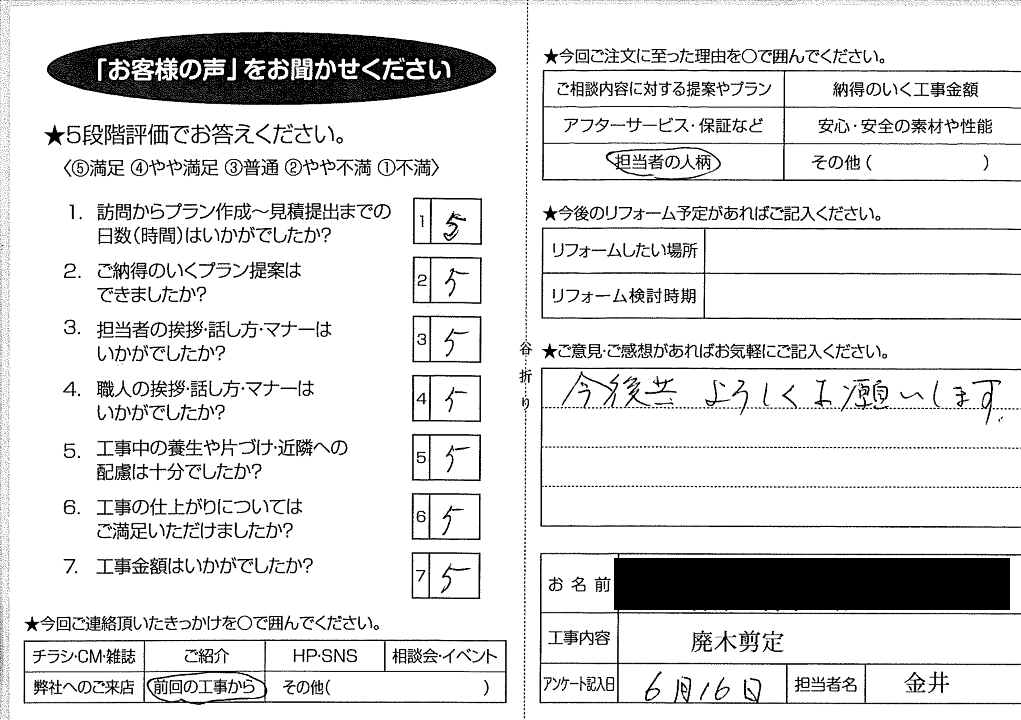 「お客様の声」をお聞かせください
★5段階評価でお答えください。
〈⑤満足 ④やや満足 ③普通 ②やや不満 ①不満〉
1. 訪問からプラン作成～見積提出までの
日数(時間)はいかがでしたか?
1 5
2. ご納得のいくプラン提案は
できましたか?
2 5
3. 担当者の挨拶・話し方・マナーは
いかがでしたか?
3 5
4. 職人の挨拶・話し方・マナーは
いかがでしたか?
4 5
5. 工事中の養生や片づけ・近隣への
配慮は十分でしたか?
5 5
6. 工事の仕上がりについては
ご満足いただけましたか?
6 5
7. 工事金額はいかがでしたか?
7 5
★今回ご連絡頂いたきっかけを○で囲んでください。
チラシ・CM・雑誌 ご紹介 HP・SNS 相談会・イベント
弊社へのご来店 前回の工事から その他( )
谷折り
★今回ご注文に至った理由を○で囲んでください。
ご相談内容に対する提案やプラン 納得のいく工事金額
アフターサービス・保証など 安心・安全の素材や性能
担当者の人柄 その他( )
★今後のリフォーム予定があればご記入ください。
リフォームしたい場所
リフォーム検討時期
★ご意見・ご感想があればお気軽にご記入ください。
今後共 よろしくお願いします.
お名前
工事内容 廃木剪定
アンケート記入日 6月16日 担当者名 金井